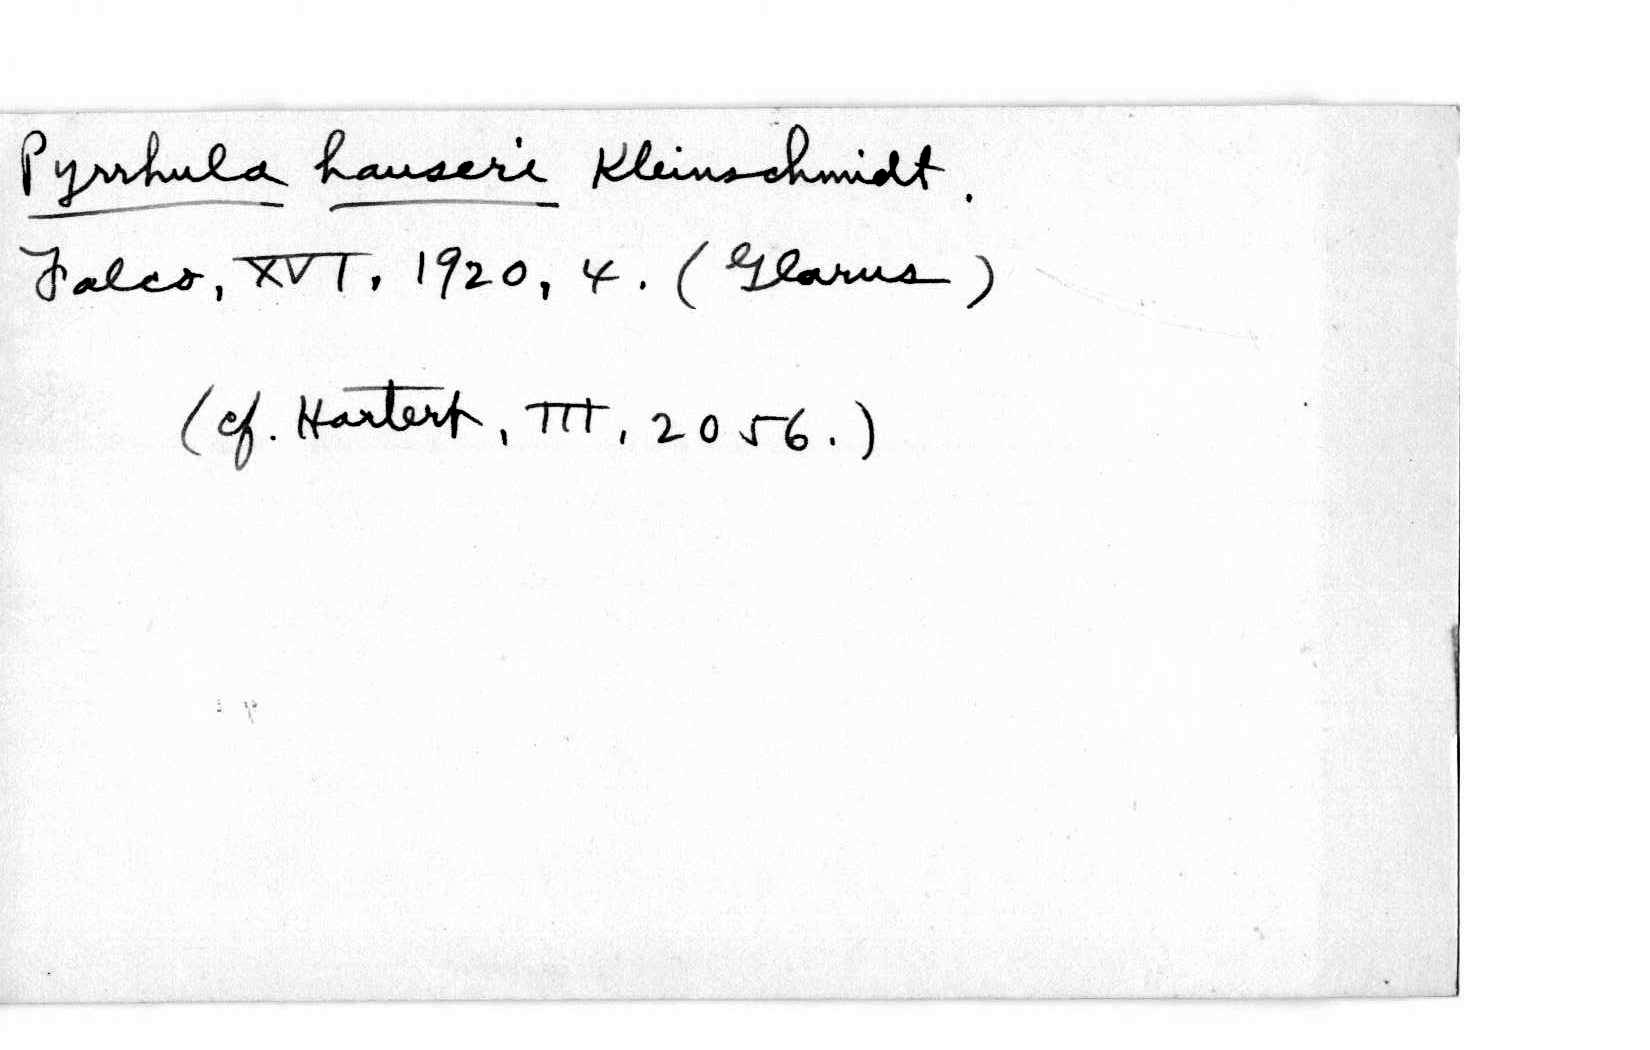 Pyrrhula hauseri Kleinschmidt.
Falco, XVI, 1920, 4. (Glarus)
(cf. Hartert, III, 2056.)